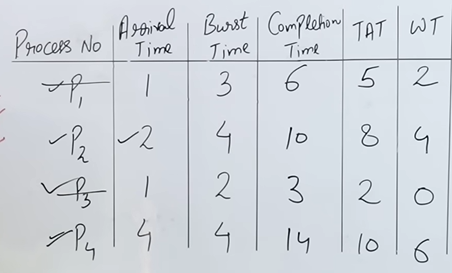 Process No Arrival Time Burst Time Completion Time TAT WT
P1 1 3 6 5 2
P2 2 4 10 8 4
P3 1 2 3 2 0
P4 4 4 14 10 6